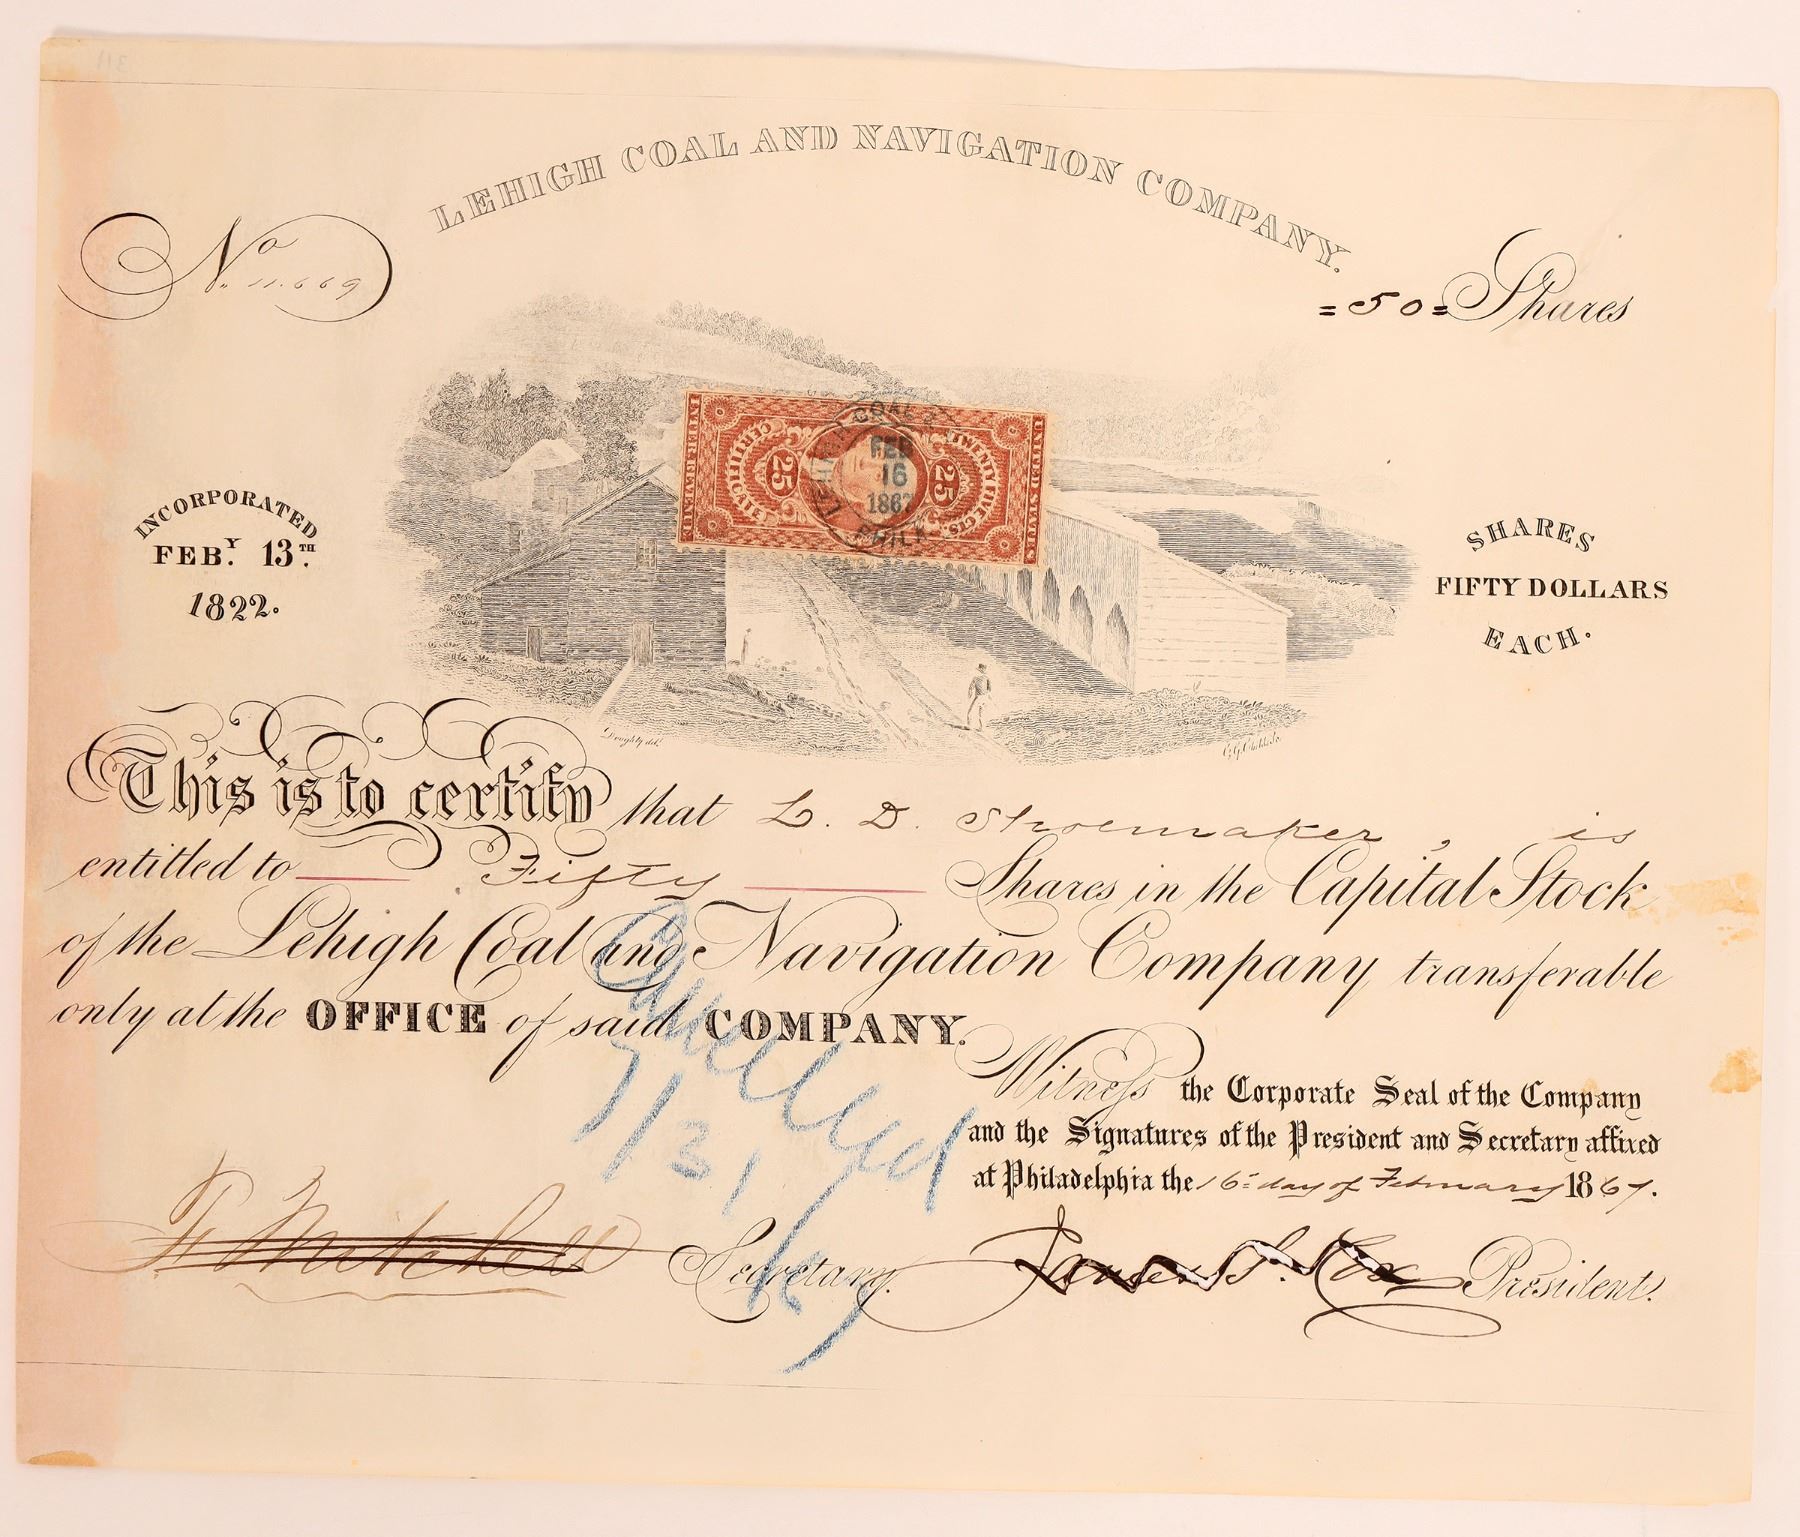 LEHIGH COAL AND NAVIGATION COMPANY.
No. 11.669
=50= Shares
INCORPORATED
FEBY. 13TH.
1822.
UNITED STATES
INTER. REVENUE
CERTIFICATE
TWENTY FIVE CTS.
25 25
LEHIGH COAL &
FEB
16
1867
PHILA
SHARES
FIFTY DOLLARS
EACH.
Doughty del.
C.G. Childs Sc.
This is to certify that L. D. Shoemaker, is
entitled to Fifty Shares in the Capital Stock
of the Lehigh Coal and Navigation Company transferable
only at the OFFICE of said COMPANY.
Cancelled
7/31/67
Witness the Corporate Seal of the Company
and the Signatures of the President and Secretary affixed
at Philadelphia the 16th day of February 1867.
F. Mitchell Secretary.
James S. Cox President.